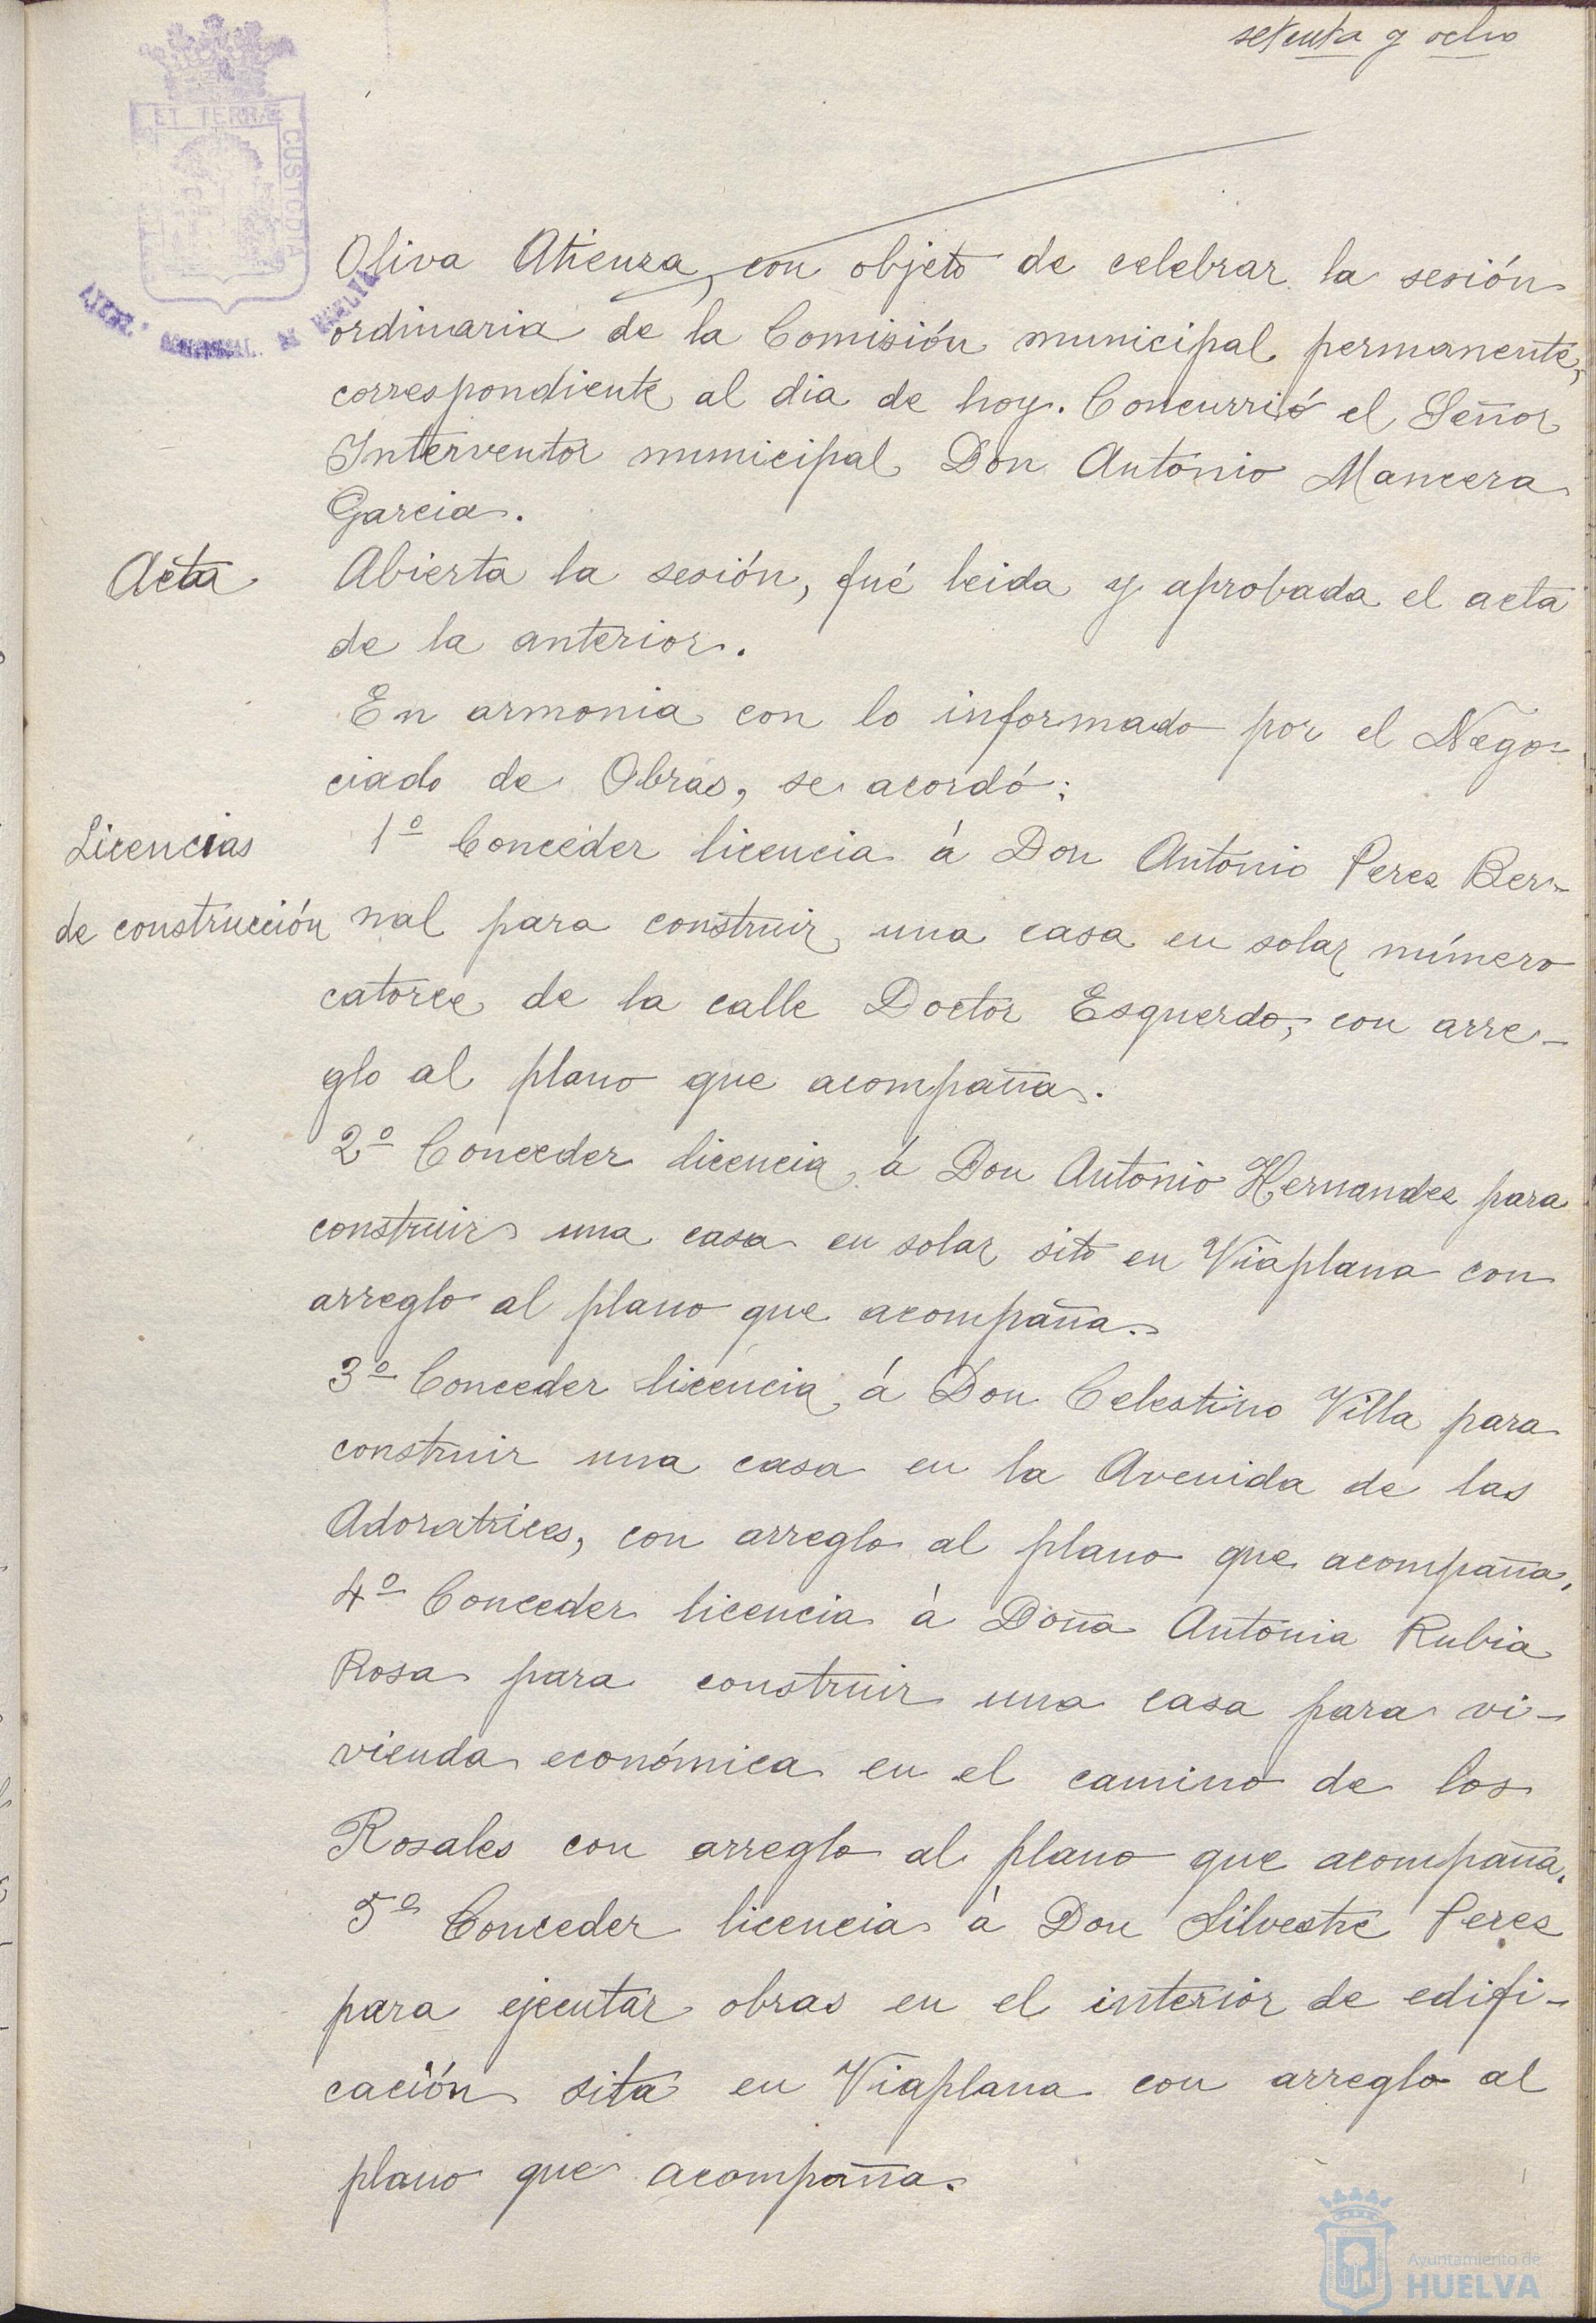 setenta y ocho
ET TERRÆ
CUSTODIA
Oliva Atienza, con objeto de celebrar la sesión
ordinaria de la Comisión municipal permanente,
correspondiente al dia de hoy. Concurrió el Señor
Interventor municipal Don Antonio Mancera
Garcia.
Acta
Abierta la sesión, fué leida y aprobada el acta
de la anterior.
En armonia con lo informado por el Nego-
ciado de Obras, se acordó:
Licencias
de construcción
1º Conceder licencia á Don Antonio Perez Ber-
nal para construir una casa en solar número
catorce de la calle Doctor Esquerdo, con arre-
glo al plano que acompaña.
2º Conceder licencia á Don Antonio Hernandez para
construir una casa en solar sito en Viaplana con
arreglo al plano que acompaña.
3º Conceder licencia á Don Celestino Villa para
construir una casa en la Avenida de las
Adoratrices, con arreglo al plano que acompaña.
4º Conceder licencia á Doña Antonia Rubia
Rosa para construir una casa para vi-
vienda económica en el camino de los
Rosales con arreglo al plano que acompaña.
5º Conceder licencia á Don Silvestre Perez
para ejecutar obras en el interior de edifi-
cación sita en Viaplana con arreglo al
plano que acompaña.
Ayuntamiento de
HUELVA